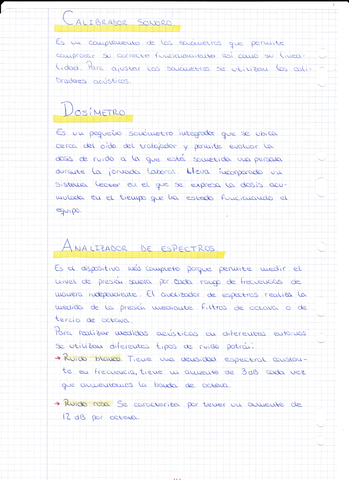 CALIBRADOR SONORO
Es un complemento de los sonómetros que permite
comprobar su correcto funcionamiento así como su linea-
lidad. Para ajustar los sonómetros se utilizan los cali-
bradores acústicos.
DOSÍMETRO
Es un pequeño sonómetro integrador que se ubica
cerca del oído del trabajador y permite evaluar la
dosis de ruido a la que está sometida una persona
durante la jornada laboral. Lleva incorporado un
sistema lector en el que se expresa la dosis acu-
mulada en el tiempo que ha estado funcionando el
equipo.
ANALIZADOR DE ESPECTROS
Es el dispositivo más completo porque permite medir el
nivel de presión sonora por cada rango de frecuencias de
manera independiente. El analizador de espectros realiza la
medida de la presión mediante filtros de octava o de
tercio de octava.
Para realizar medidas acústicas en diferentes entornos
se utilizan diferentes tipos de ruido patrón:
→ Ruido blanco. Tiene una densidad espectral constan-
te en frecuencia, tiene un aumento de 3dB cada vez
que aumentamos la banda de octava.
→ Ruido rosa. Se caracteriza por tener un aumento de
12 dB por octava.